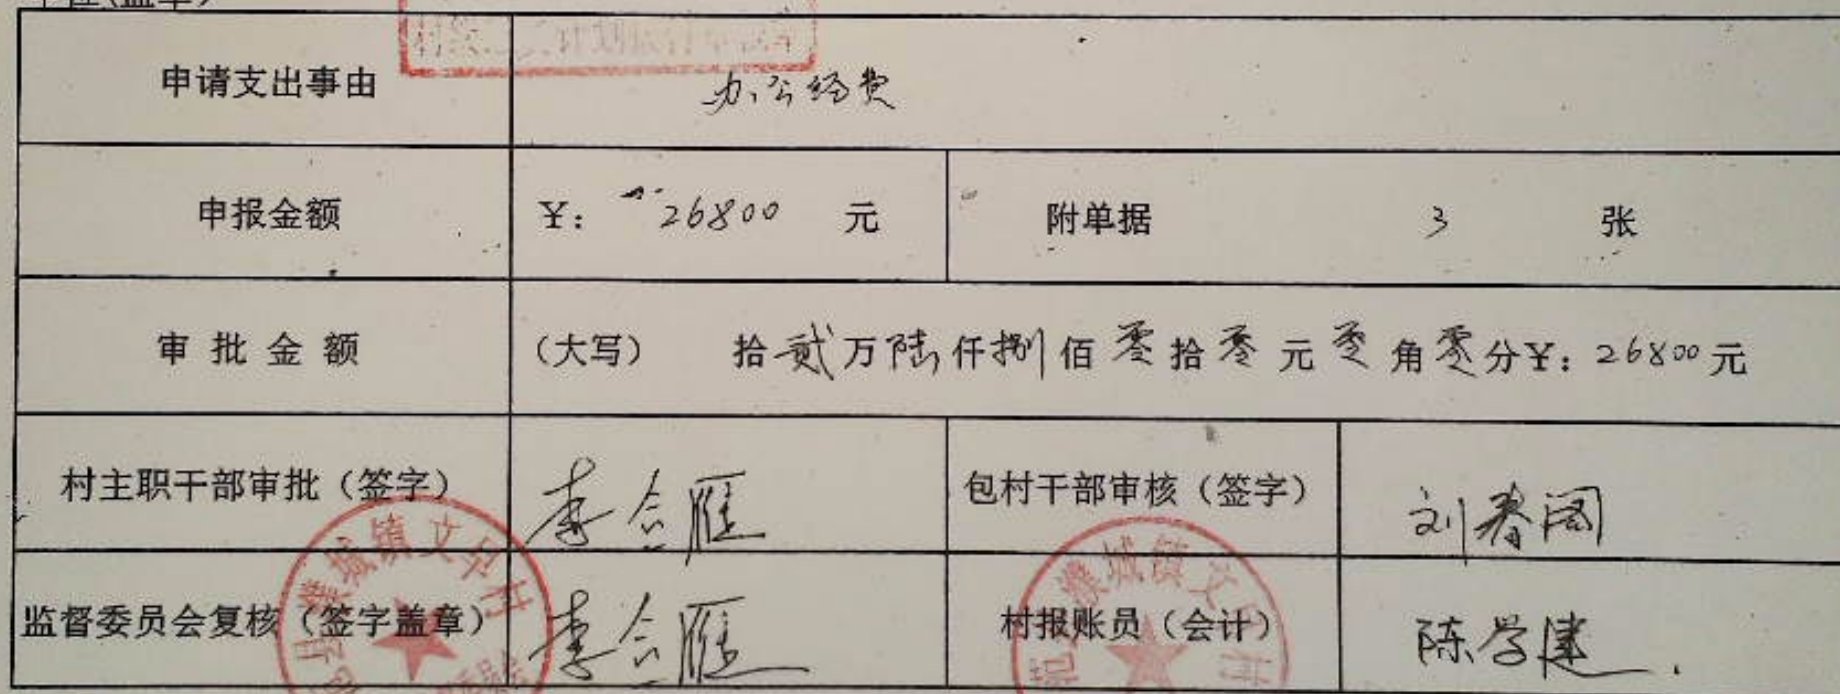 申请支出事由 办公经费
申报金额 ¥: 26800 元 附单据 3 张
审批金额 (大写) 拾贰万陆仟捌佰零拾零元零角零分¥: 26800元
村主职干部审批(签字) 李合雁 包村干部审核(签字) 刘春阁
监督委员会复核(签字盖章) 李合雁 村报账员(会计) 陈学建
濮城镇文
濮城镇文